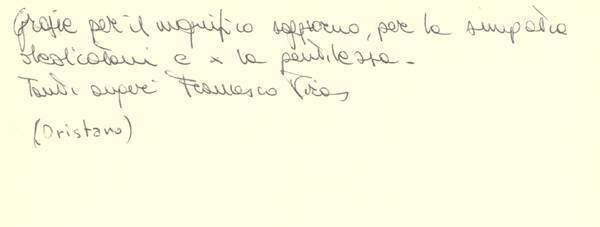 Grazie per il magnifico soggiorno, per la simpatia
dedicatami e x la gentilezza.
Tanti auguri Francesco
(Oristano)